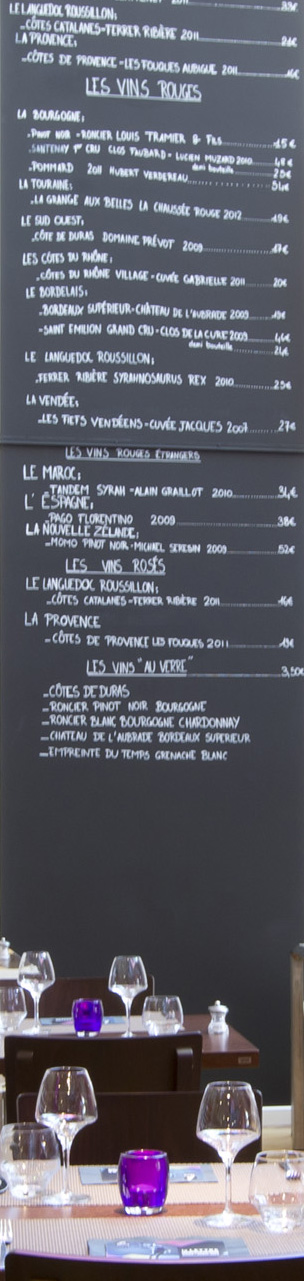 LE LANGUEDOC ROUSSILLON:
_CÔTES CATALANES-FERRER RIBIÈRE 2011
LA PROVENCE:
_CÔTES DE PROVENCE-LES FOUQUES AUBIGUE 2011
LES VINS ROUGES
LA BOURGOGNE:
_PINOT NOIR -RONCIER LOUIS TRAMIER & FILS 15€
_SANTENAY 1ER CRU CLOS FAUBARD- LUCIEN MUZARD 2010 48€
demi bouteille 25€
_POMMARD 2011 HUBERT VERDEREAU
LA TOURAINE:
_LA GRANGE AUX BELLES LA CHAUSSÉE ROUGE 2012 19€
LE SUD OUEST:
_CÔTE DE DURAS DOMAINE PRÉVOT 2009 17€
LES CÔTES DU RHÔNE:
_CÔTES DU RHÔNE VILLAGE-CUVÉE GABRIELLE 2011 20€
LE BORDELAIS:
_BORDEAUX SUPÉRIEUR-CHÂTEAU DE L'AUBRADE 2009 19€
-SAINT EMILION GRAND CRU-CLOS DE LA CURE 2009 46€
demi bouteille 24€
LE LANGUEDOC ROUSSILLON:
_FERRER RIBIÈRE SYRAHNOSAURUS REX 2010 25€
LA VENDÉE:
_LES FIEFS VENDÉENS-CUVÉE JACQUES 2007 27€
LES VINS ROUGES ÉTRANGERS
LE MAROC:
_TANDEM SYRAH -ALAIN GRAILLOT 2010 34€
L' ESPAGNE:
_PAGO FLORENTINO 2009 38€
LA NOUVELLE ZÉLANDE:
_MOMO PINOT NOIR-MICHAEL SERESIN 2009 52€
LES VINS ROSÉS
LE LANGUEDOC ROUSSILLON:
_CÔTES CATALANES -FERRER RIBIÈRE 2011 16€
LA PROVENCE
_CÔTES DE PROVENCE LES FOUQUES 2011 19€
LES VINS "AU VERRE" 3,50€
_CÔTES DE DURAS
_RONCIER PINOT NOIR BOURGOGNE
_RONCIER BLANC BOURGOGNE CHARDONNAY
_CHATEAU DE L'AUBRADE BORDEAUX SUPERIEUR
_EMPREINTE DU TEMPS GRENACHE BLANC